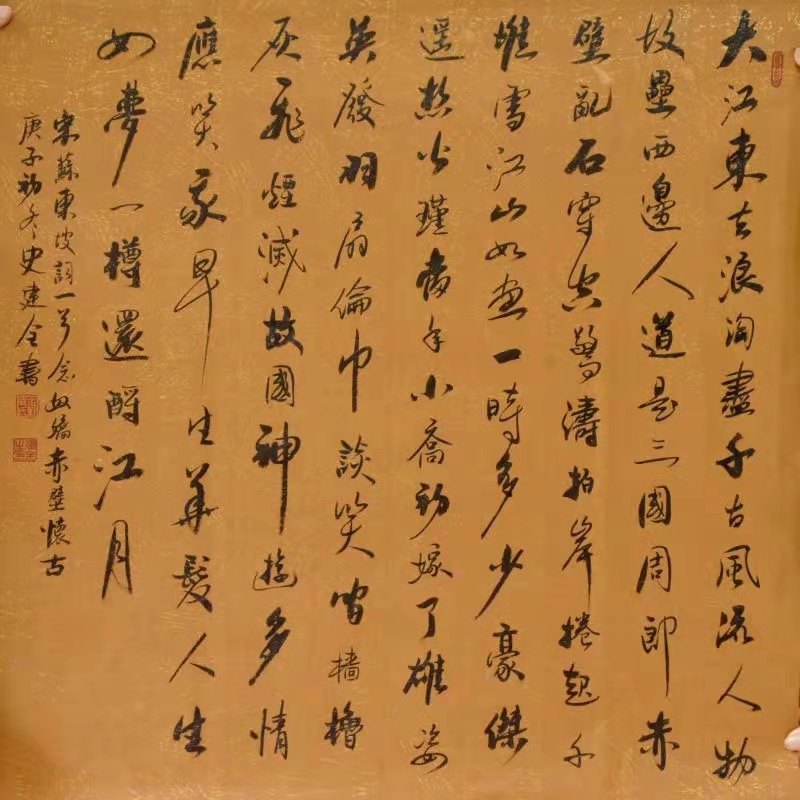 大江東去浪淘盡千古風流人物
故壘西邊人道是三國周郎赤
壁亂石穿空驚濤拍岸捲起千
堆雪江山如畫一時多少豪傑
遥想公瑾當年小喬初嫁了雄姿
英發羽扇倫巾談笑間檣櫓
灰飛煙滅故國神遊多情
應笑我早生華髮人生
如夢一樽還酹江月
宋蘇東坡詞一首念奴嬌赤壁懷古
庚子初冬史建全書